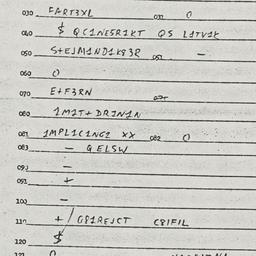 030 FART3XL 031 0
040 $ QC1NESR1KT QS L1TV1K
050 S+EJM1ND1K83R 051 -
060 0
070 E+F3RN
080 1M1T+DR1N1N
081 1MPL1C1NG2 XX 082 0
083 - GELSW
092 -
093 +
100 -
110 +/G81REJCT C81F1L
120 $